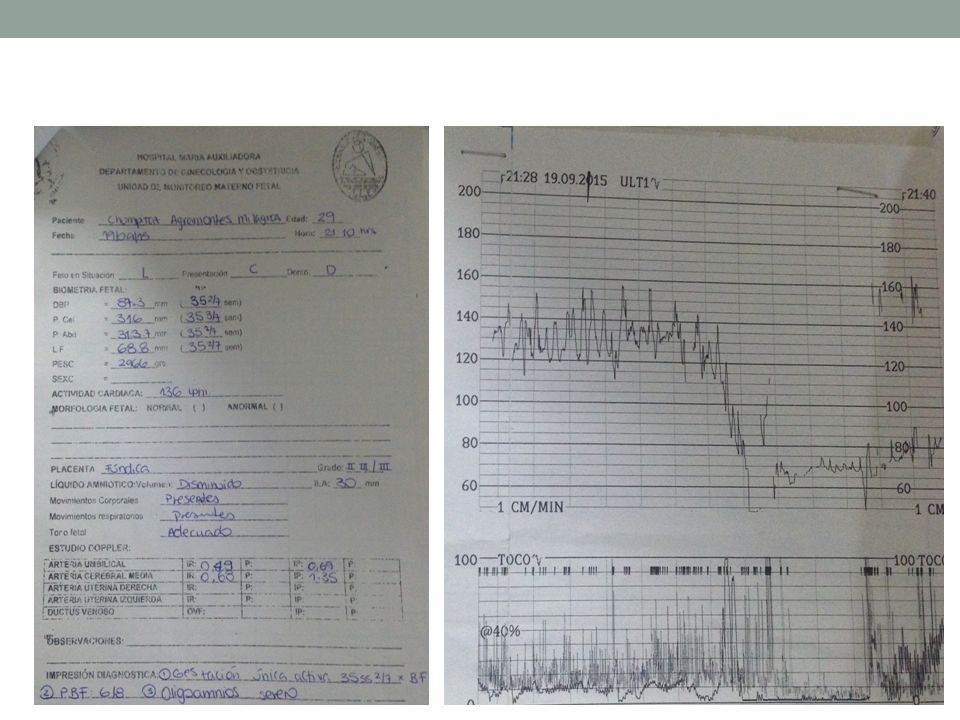 HOSPITAL MARIA AUXILIADORA
DEPARTAMENTO DE GINECOLOGIA Y OBSTETRICIA
UNIDAD DE MONITOREO MATERNO FETAL
Paciente Milagros Edad: 29
Fecha Hora: 21:10 hrs
Feto en Situacion L Presentación C Dorso. D
BIOMETRIA FETAL:
DBP = 87.3 mm ( 35 2/7 sem)
P. Cef = 316 mm ( 35 3/4 sem)
P. Abd = 313.7 mm ( 35 3/4 sem)
L F = 68.8 mm ( 35 3/7 sem)
PESC = 2966 grs
SEXC =
ACTIVIDAD CARDIACA: 136 lpm
MORFOLOGIA FETAL: NORMAL ( ) ANORMAL ( )
PLACENTA Fúndica Grado II III / III
LÍQUIDO AMNIOTICO: Volumen: Disminuido ILA: 30 mm
Movimientos Corporales Presentes
Movimientos respiratorios Presentes
Tono fetal Adecuado
ESTUDIO DOPPLER:
ARTERIA UMBILICAL IR: 0,49 P: IP: 0,69 P:
ARTERIA CEREBRAL MEDIA IR: 0,68 P: IP: 1.35 P:
ARTERIA UTERINA DERECHA IR: P: IP: P:
ARTERIA UTERINA IZQUIERDA IR: P: IP: P:
DUCTUS VENOSO OVF: IP: P:
OBSERVACIONES:
IMPRESIÓN DIAGNOSTICA: ① Gestación única activa 35ss 3/7 x BF
② PBF: 6/8 ③ Oligoamnios severo
21:28 19.09.2015 ULT1
21:40
200 200
180 180
160 160
140 140
120 120
100 100
80 80
60 60
1 CM/MIN 1 CM
100 TOCO 100 TOCO
@40%
0 0